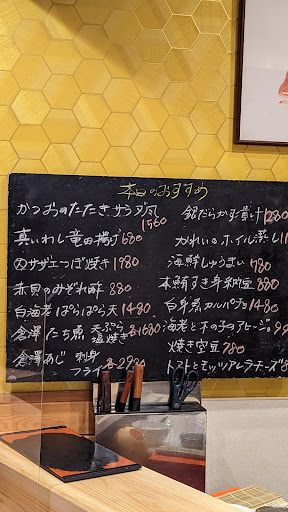 本日のおすすめ
かつおのたたきサラダ風 1580
真いわし竜田揚げ 680
サザエつぼ焼き 1980
赤貝のみぞれ酢 880
白海老ぱらぱら天 1480
倉澤たち魚 天ぷら 塩焼き 各1680
倉澤あじ 刺身 フライ 各2980
銀だらかす漬け 1280
かれいのホイル蒸し
海鮮しゅうまい 780
本鮪すき身納豆 880
白身魚カルパッチョ 1480
海老と木の子のアヒージョ
焼き空豆 780
トマトとモッツアレラチーズ